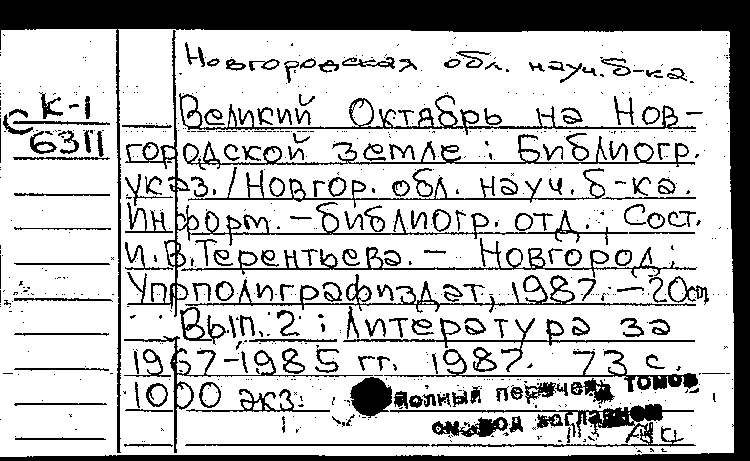 Новгородская обл. науч. б-ка.
К-1
С 6311
Великий Октябрь на Нов-
городской земле : Библиогр.
указ. / Новгор. обл. науч. б-ка.
Информ. – библиогр. отд. ; Сост.
И. В. Терентьева. – Новгород :
Упрполиграфиздат, 1987. – 20 см
Вып. 2 : Литература за
1967–1985 гг. 1987. 73 с.
1000 экз.
полный перечень томов
см под заглавием